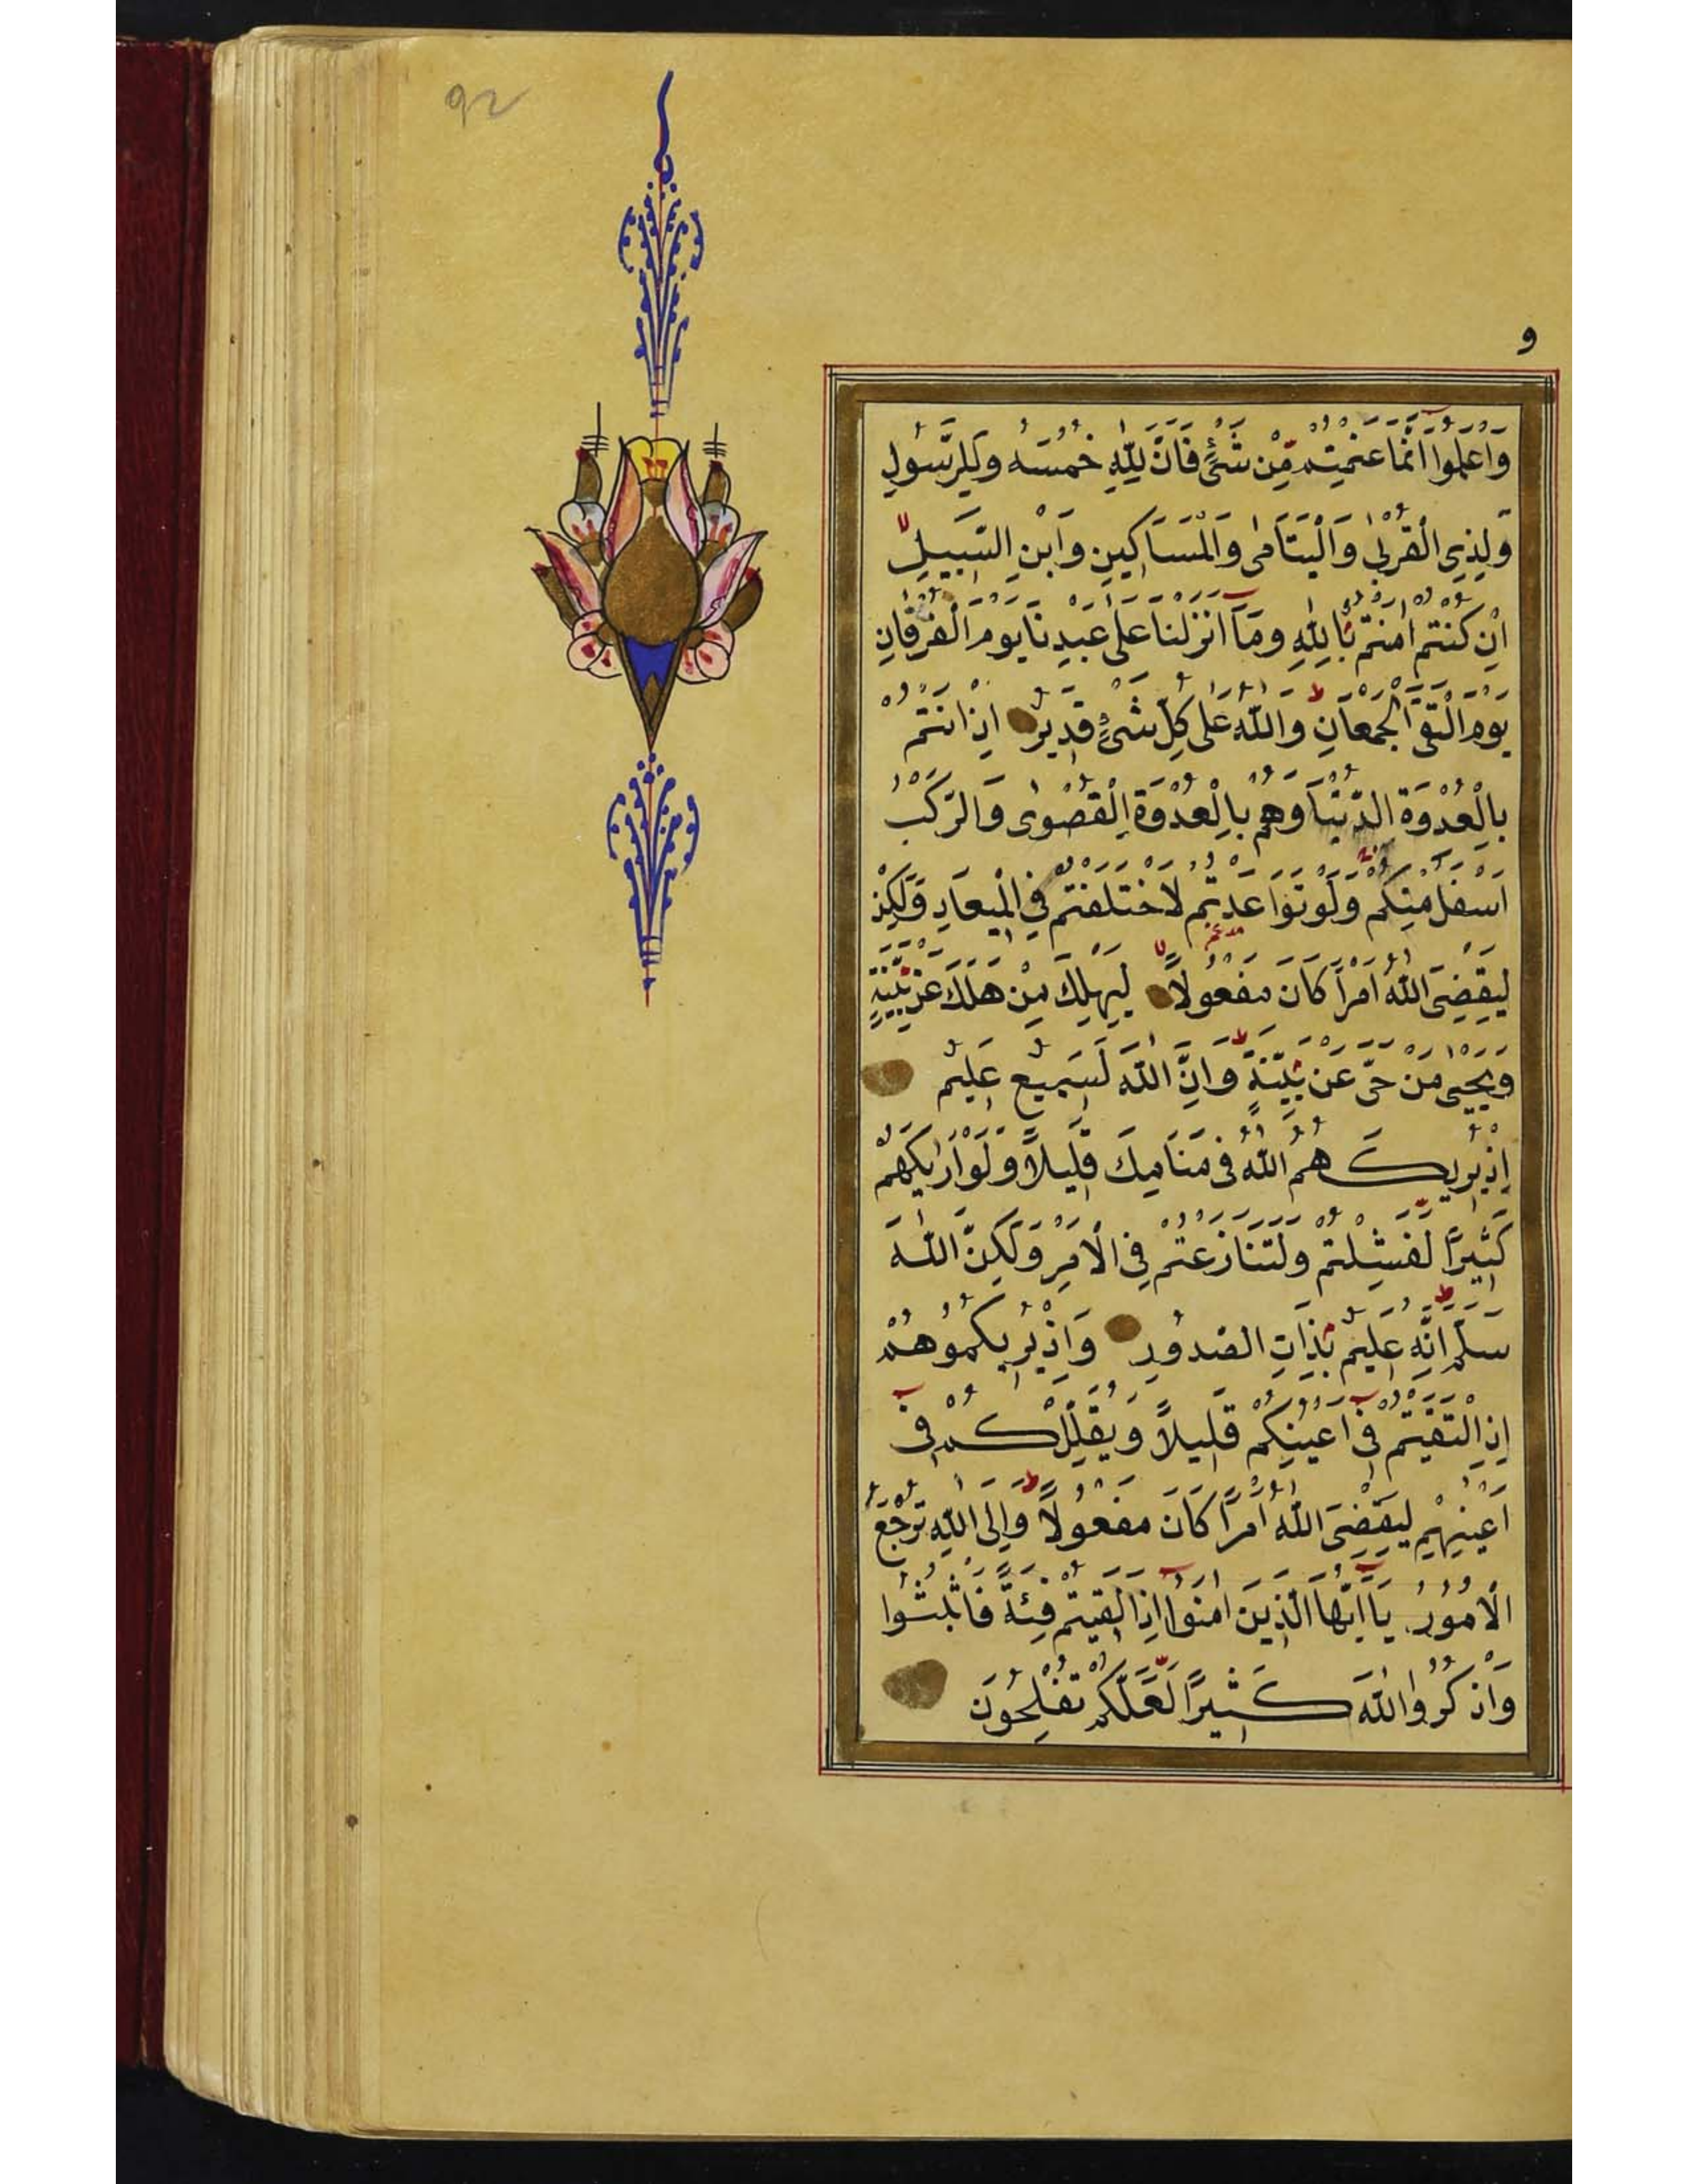 92
و
وَاعْلَمُوا أَنَّمَا غَنِمْتُمْ مِنْ شَيْءٍ فَأَنَّ لِلّٰهِ خُمُسَهُ وَلِلرَّسُولِ
وَلِذِي الْقُرْبٰى وَالْيَتَامٰى وَالْمَسَاكِينِ وَابْنِ السَّبِيلِ
اِنْ كُنْتُمْ اٰمَنْتُمْ بِاللّٰهِ وَمَآ اَنْزَلْنَا عَلٰى عَبْدِنَا يَوْمَ الْفُرْقَانِ
يَوْمَ الْتَقَى الْجَمْعَانِ وَاللّٰهُ عَلٰى كُلِّ شَيْءٍ قَدِيرٌ اِذْ اَنْتُمْ
بِالْعُدْوَةِ الدُّنْيَا وَهُمْ بِالْعُدْوَةِ الْقُصْوٰى وَالرَّكْبُ
اَسْفَلَ مِنْكُمْ وَلَوْ تَوَاعَدْتُمْ لَاخْتَلَفْتُمْ فِي الْمِيعَادِ وَلٰكِنْ
لِيَقْضِيَ اللّٰهُ اَمْرًا كَانَ مَفْعُولًا لِيَهْلِكَ مَنْ هَلَكَ عَنْ بَيِّنَةٍ
وَيَحْيٰى مَنْ حَيَّ عَنْ بَيِّنَةٍ وَاِنَّ اللّٰهَ لَسَمِيعٌ عَلِيمٌ
اِذْ يُرِيكَهُمُ اللّٰهُ فِي مَنَامِكَ قَلِيلًا وَلَوْ اَرٰيكَهُمْ
كَثِيرًا لَفَشِلْتُمْ وَلَتَنَازَعْتُمْ فِي الْاَمْرِ وَلٰكِنَّ اللّٰهَ
سَلَّمَ اِنَّهُ عَلِيمٌ بِذَاتِ الصُّدُورِ وَاِذْ يُرِيكُمُوهُمْ
اِذِ الْتَقَيْتُمْ فِي اَعْيُنِكُمْ قَلِيلًا وَيُقَلِّلُكُمْ فِي
اَعْيُنِهِمْ لِيَقْضِيَ اللّٰهُ اَمْرًا كَانَ مَفْعُولًا وَاِلَى اللّٰهِ تُرْجَعُ
الْاُمُورُ يَا اَيُّهَا الَّذِينَ اٰمَنُوا اِذَا لَقِيتُمْ فِئَةً فَاثْبُتُوا
وَاذْكُرُوا اللّٰهَ كَثِيرًا لَعَلَّكُمْ تُفْلِحُونَ